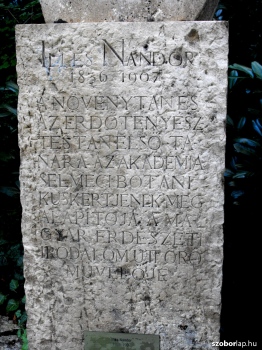 ILLÉS NÁNDOR
1836-1907
A NÖVÉNYTAN ÉS
AZ ERDŐTENYÉSZ
TÉSTAN ELSŐ TA
NÁRA AZ AKADÉMIA
SELMECI BOTANI
KUS KERTJÉNEK MEG
ALAPÍTÓJA, A MA
GYAR ERDÉSZETI
IRODALOM ÚTTÖRŐ
MŰVELŐJE
szoborlap.hu